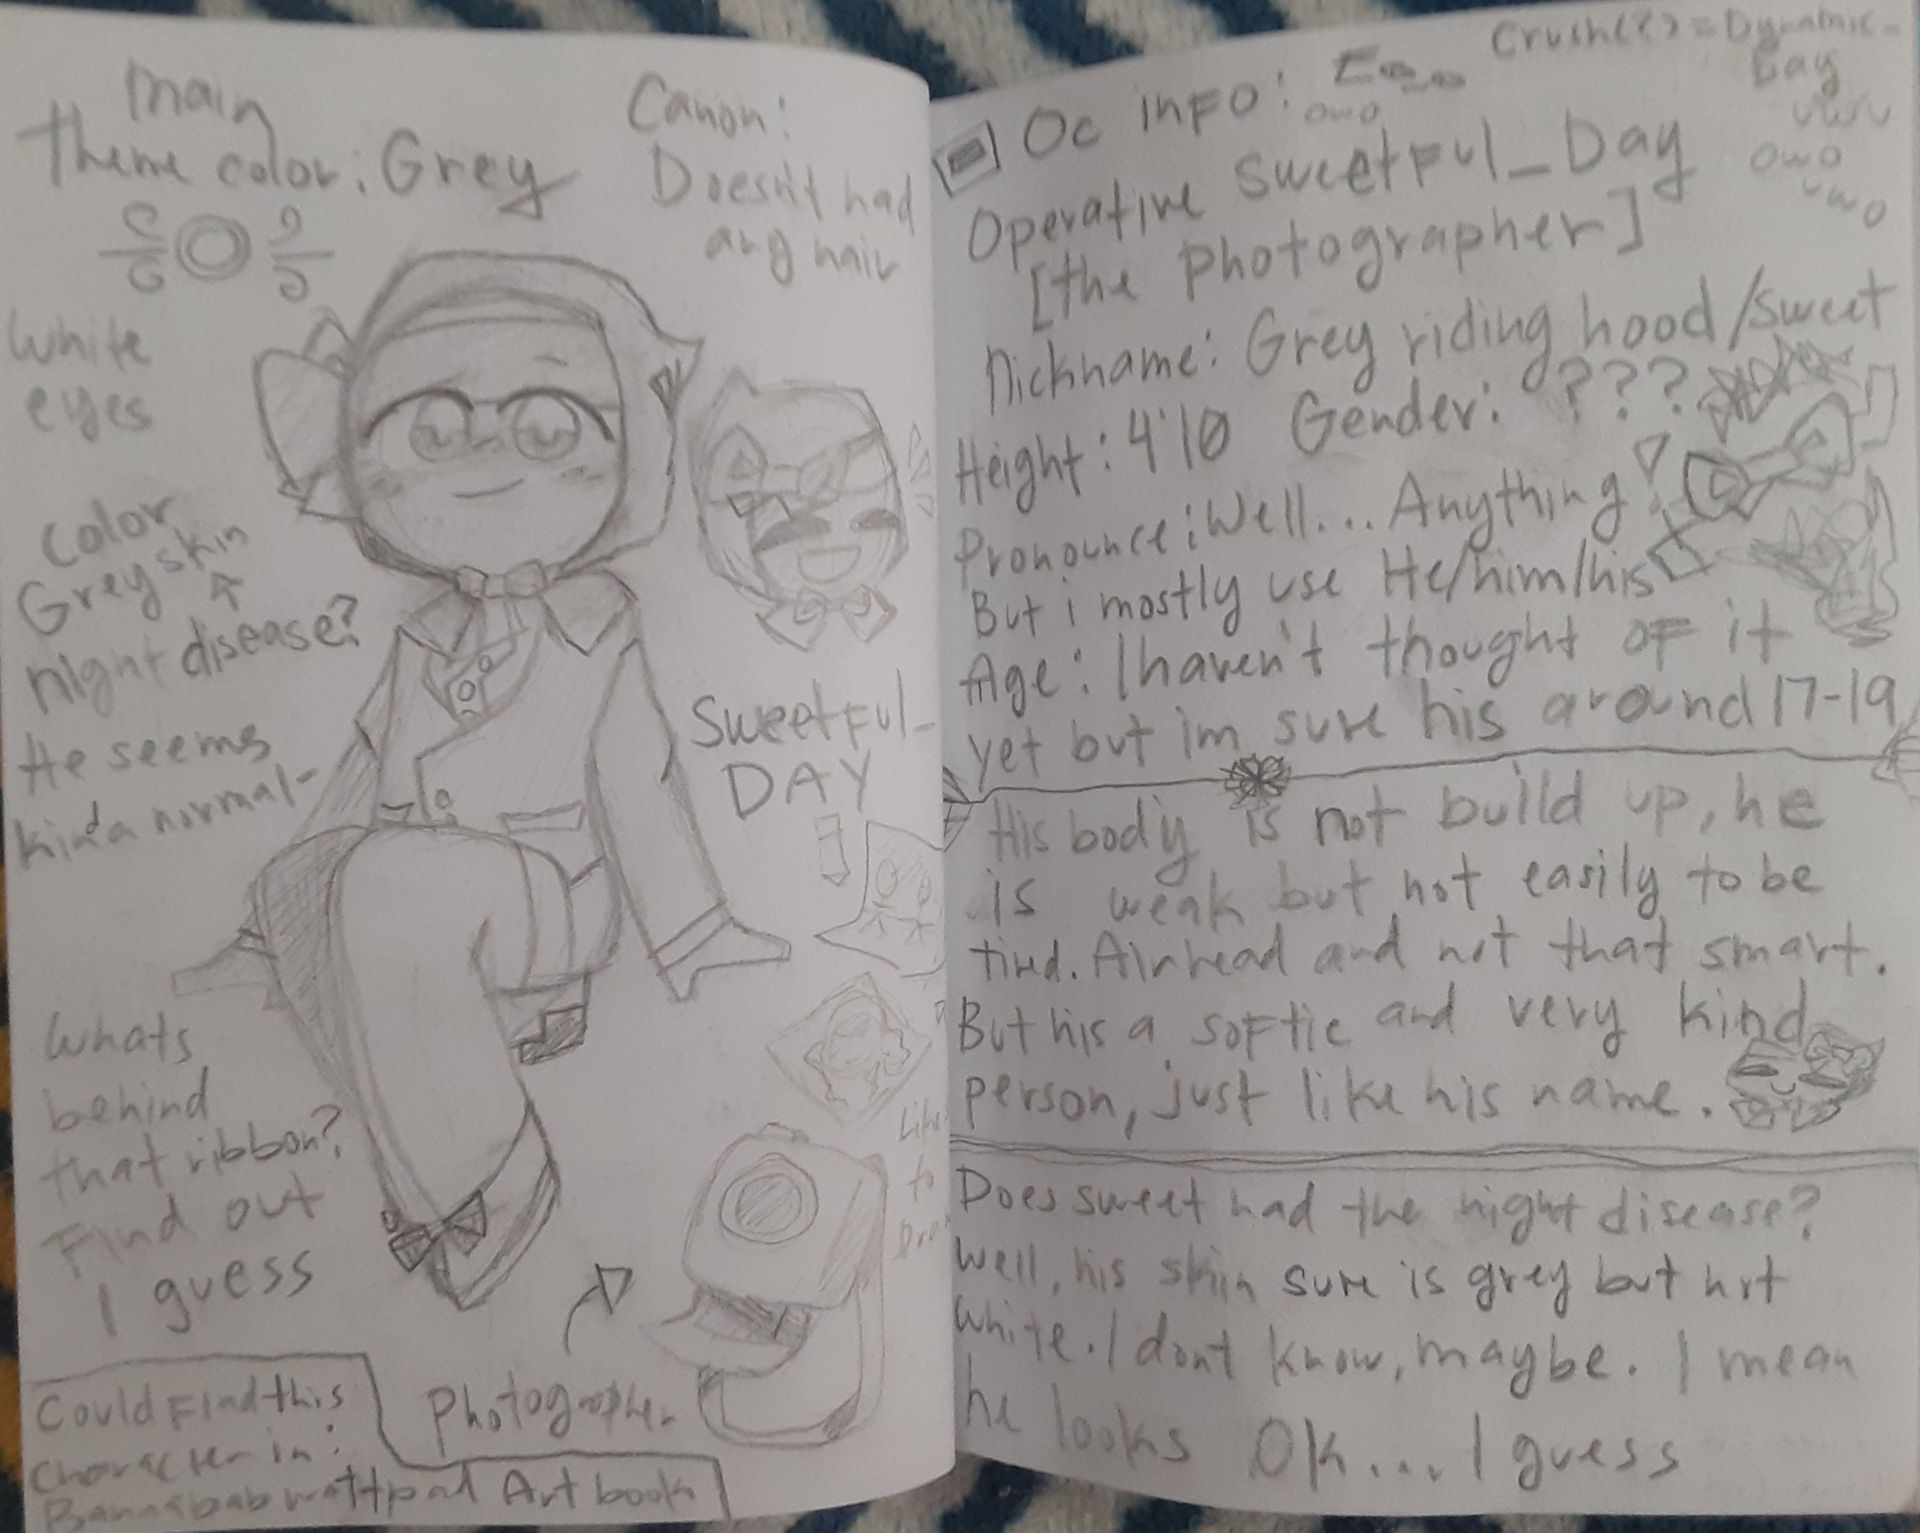 main
theme color: Grey
Canon:
Doesn't had
any hair
White
eyes
Color
Grey skin
night disease?
He seems
kinda normal-
Sweetful_
DAY
Whats
behind
that ribbon?
Find out
I guess
Like
to
Photographer
Could Find this
character in:
wattpad Art book
Crush(?) = Dynamic-
Day
uwu
owo
uwo
Oc info:
owo
Operative Sweetful_Day
[the photographer]
Nickname: Grey riding hood/sweet
Height: 4'10 Gender: ???
Pronounce: Well... Anything!
But i mostly use He/him/his
Age: I haven't thought of it
yet but im sure his around 17-19
His body is not build up, he
is weak but not easily to be
tired. Airhead and not that smart.
But his a softie and very kind
person, just like his name.
Does sweet had the night disease?
Well, his skin sure is grey but not
white. I dont know, maybe. I mean
he looks Ok... I guess